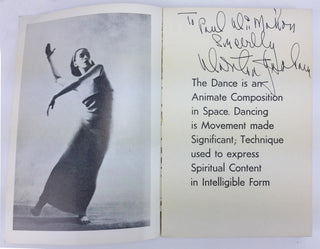 To Paul McMahon
Sincerely
Martha Graham
The Dance is an
Animate Composition
in Space. Dancing
is Movement made
Significant; Technique
used to express
Spiritual Content
in Intelligible Form